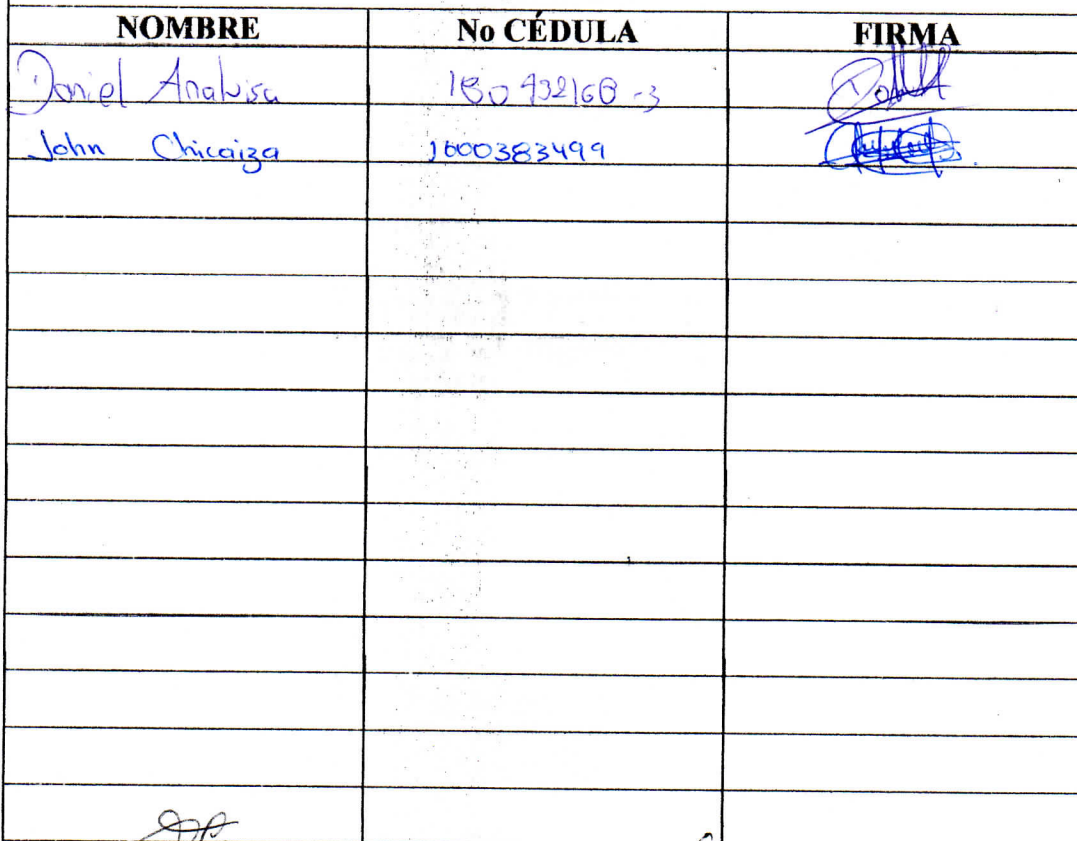 NOMBRE No CÉDULA FIRMA
Daniel Analuisa 180432168-3
John Chicaiza 1600383499